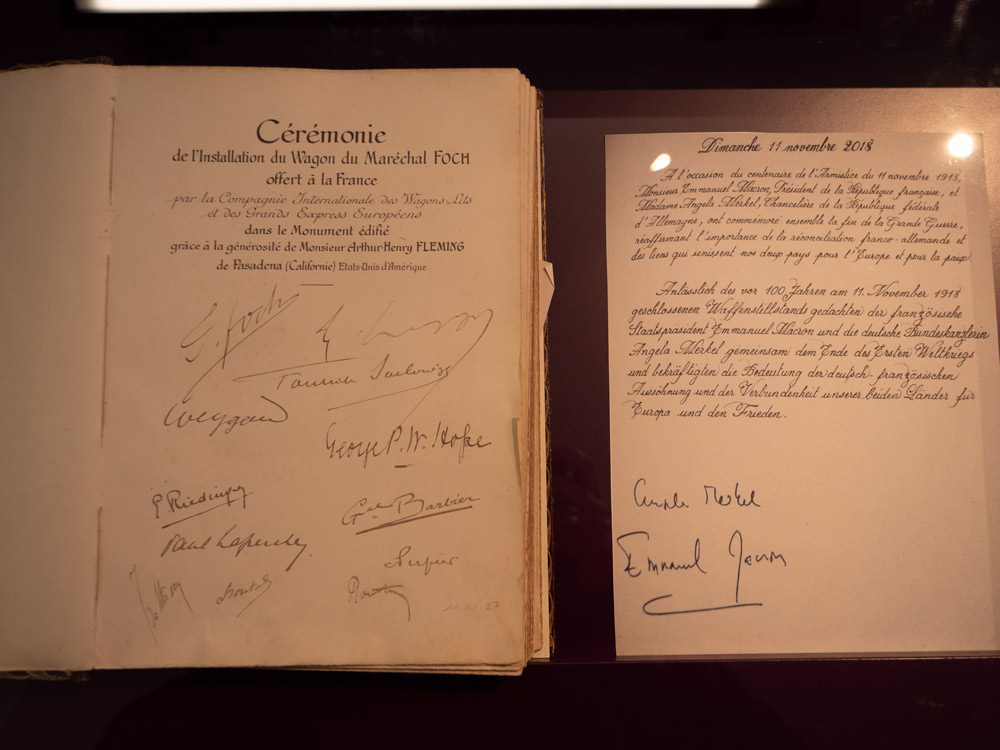 Cérémonie
de l'Installation du Wagon du Maréchal FOCH
offert à la France
par la Compagnie Internationale des Wagons-Lits
et des Grands Express Européens
dans le Monument édifié
grâce à la générosité de Monsieur Arthur-Henry FLEMING
de Pasadena (Californie) Etats-Unis d'Amérique
Foch
Weygand
George P. W. Hope
P Riedinger
Gal Barbier
Paul
27
Dimanche 11 novembre 2018
A l'occasion du centenaire de l'Armistice du 11 novembre 1918,
Monsieur Emmanuel Macron, Président de la République française, et
Madame Angela Merkel, Chancelière de la République fédérale
d'Allemagne, ont commémoré ensemble la fin de la Grande Guerre,
réaffirmant l'importance de la réconciliation franco-allemande et
des liens qui unissent nos deux pays pour l'Europe et pour la paix.
Anlässlich des vor 100 Jahren am 11. November 1918
geschlossenen Waffenstillstands gedachten der französische
Staatspräsident Emmanuel Macron und die deutsche Bundeskanzlerin
Angela Merkel gemeinsam dem Ende des Ersten Weltkriegs
und bekräftigten die Bedeutung der deutsch-französischen
Aussöhnung und der Verbundenheit unserer beiden Länder für
Europa und den Frieden.
Angela Merkel
Emmanuel Macron